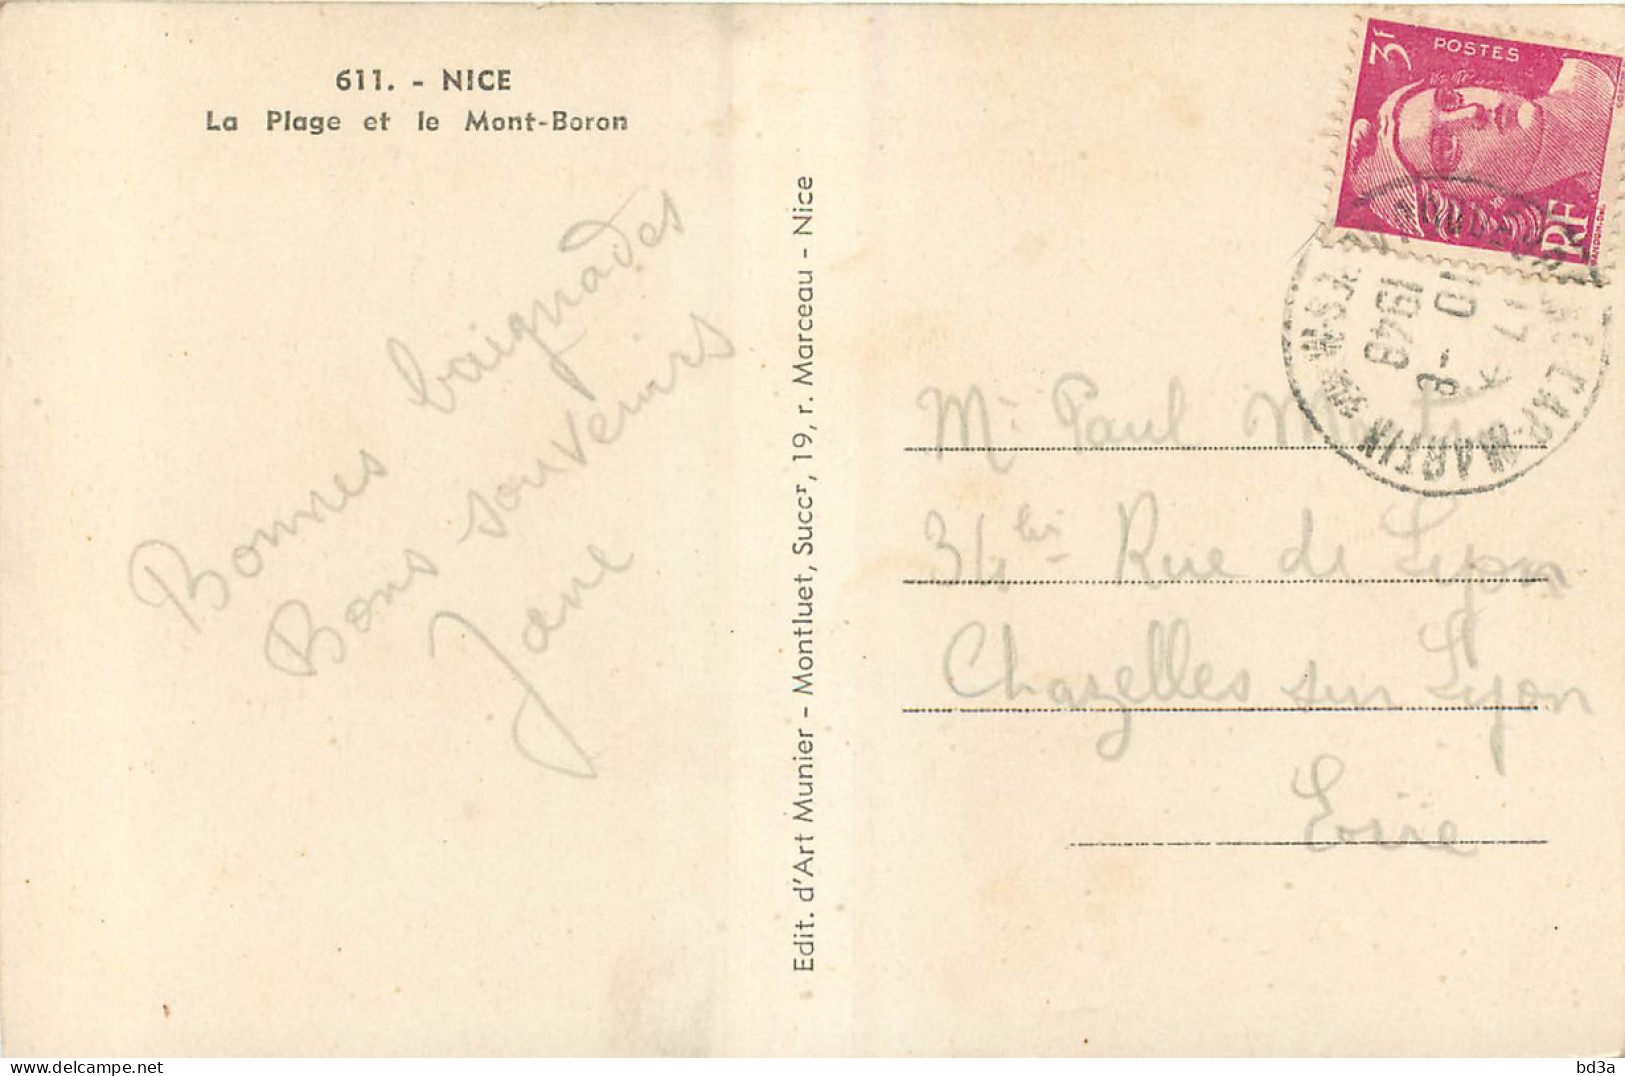 611. - NICE
La Plage et le Mont-Boron
Bonnes baignades
Bons souvenirs
Jane
Edit. d'Art Munier - Montluet, Succr, 19, r. Marceau - Nice
3F
POSTES
RF
GANDON.DEL.
CAP-MARTIN
17
10 - 8
1948
Mr Paul
34 bis Rue de Lyon
Chazelles sur Lyon
Loire
bd3a